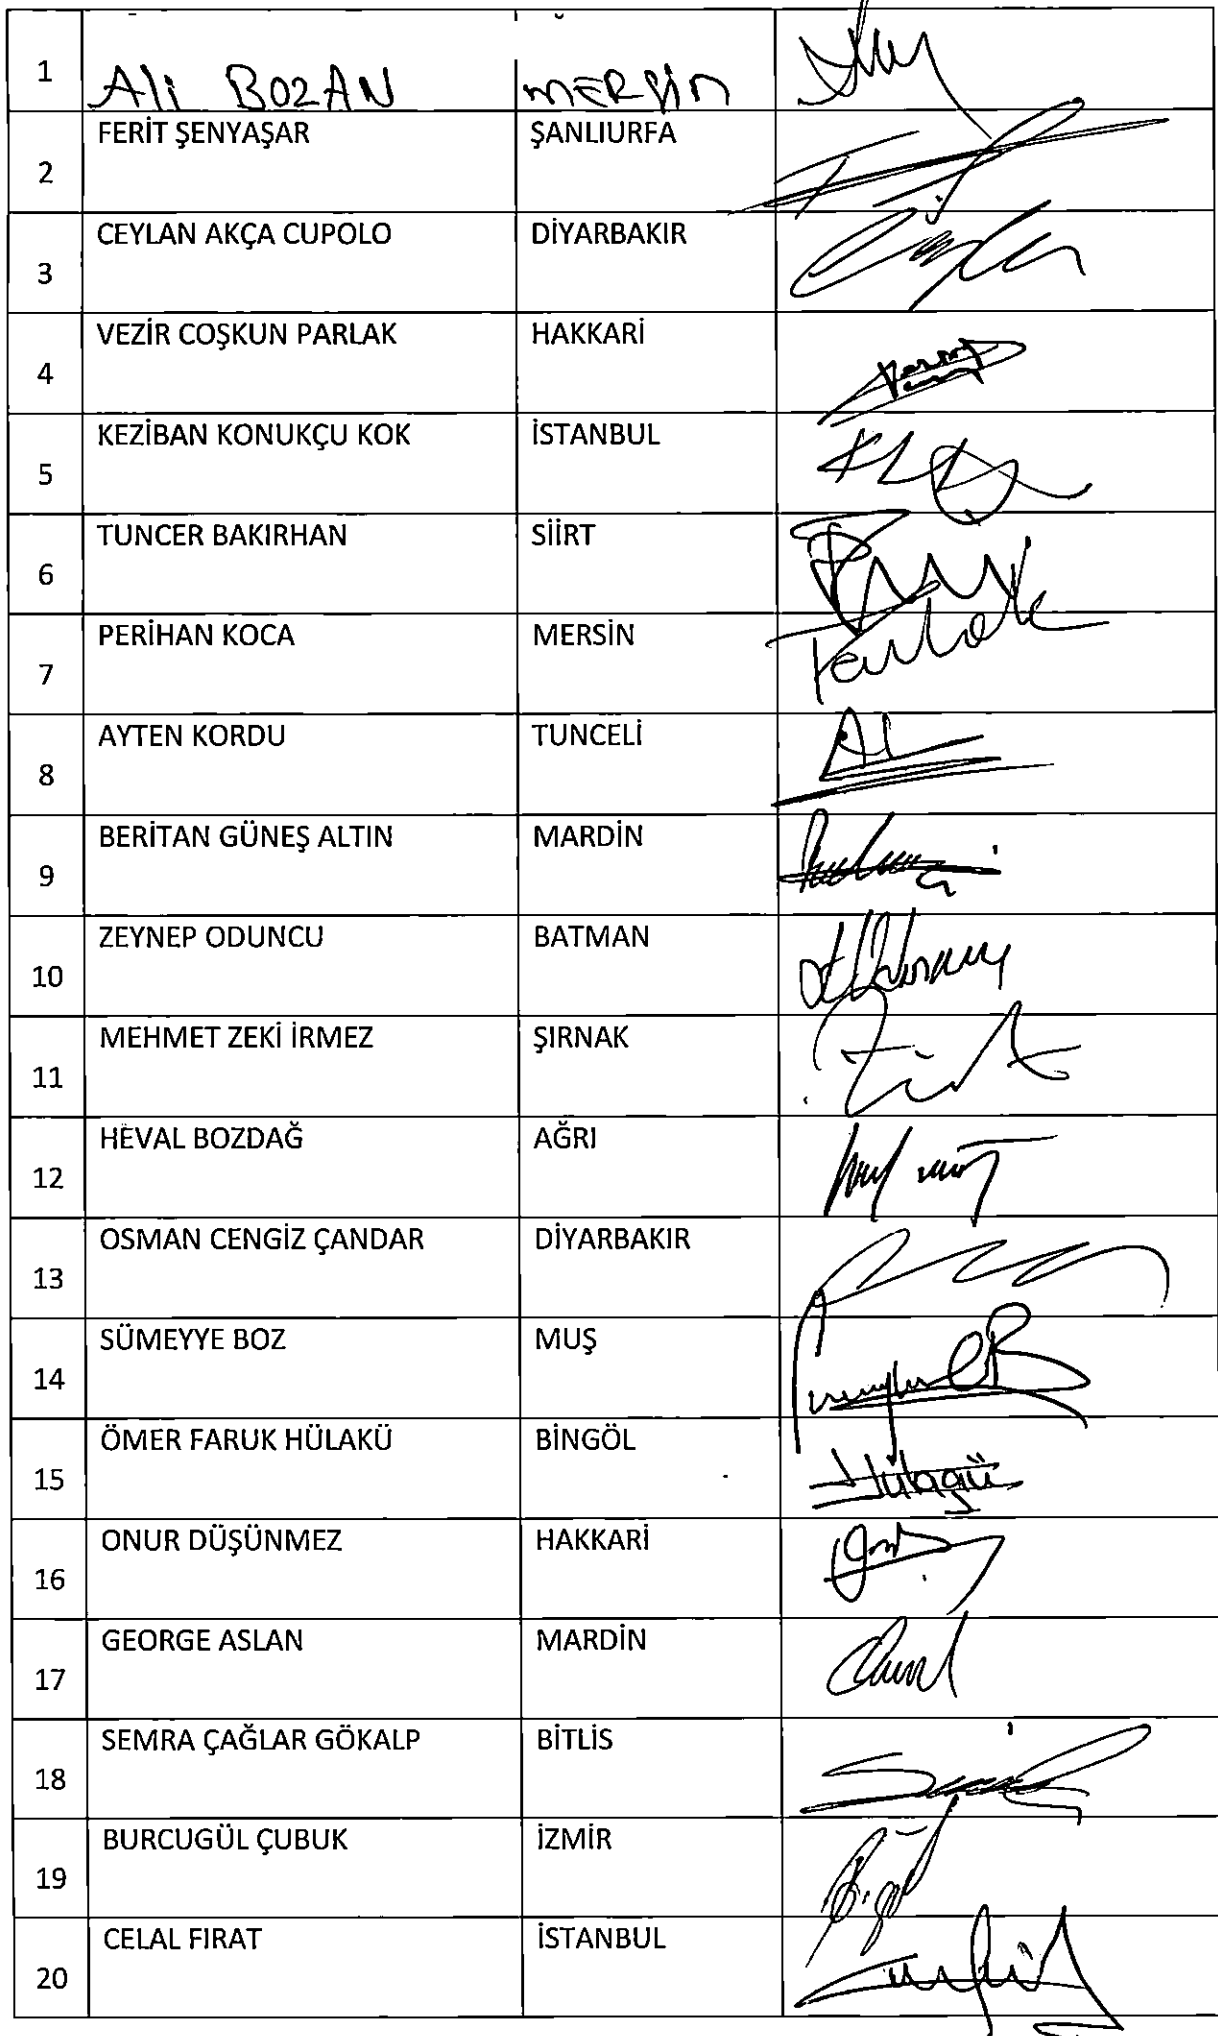 1 Ali BOZAN MERSİN
2 FERİT ŞENYAŞAR ŞANLIURFA
3 CEYLAN AKÇA CUPOLO DİYARBAKIR
4 VEZİR COŞKUN PARLAK HAKKARİ
5 KEZİBAN KONUKÇU KOK İSTANBUL
6 TUNCER BAKIRHAN SİİRT
7 PERİHAN KOCA MERSİN
8 AYTEN KORDU TUNCELİ
9 BERİTAN GÜNEŞ ALTIN MARDİN
10 ZEYNEP ODUNCU BATMAN
11 MEHMET ZEKİ İRMEZ ŞIRNAK
12 HEVAL BOZDAĞ AĞRI
13 OSMAN CENGİZ ÇANDAR DİYARBAKIR
14 SÜMEYYE BOZ MUŞ
15 ÖMER FARUK HÜLAKÜ BİNGÖL
16 ONUR DÜŞÜNMEZ HAKKARİ
17 GEORGE ASLAN MARDİN
18 SEMRA ÇAĞLAR GÖKALP BİTLİS
19 BURCUGÜL ÇUBUK İZMİR
20 CELAL FIRAT İSTANBUL